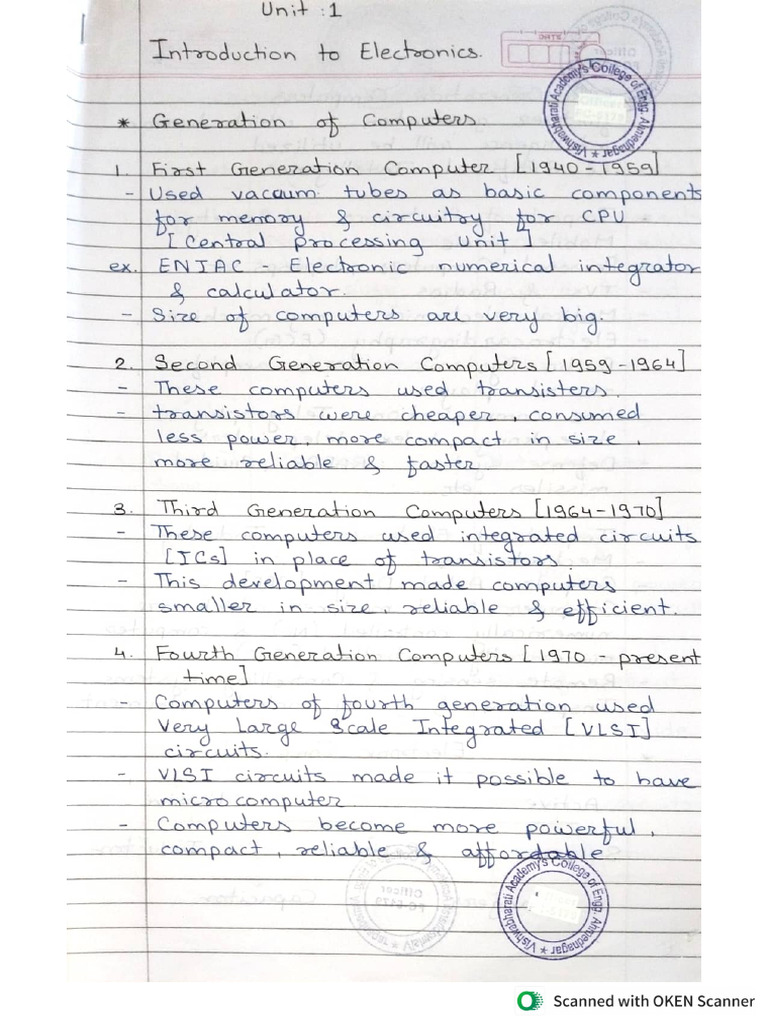 Unit : 1
Introduction to Electronics.
DATE
Vishwabharati Academy's College of Engg. Ahmednagar
* Generation of Computers
1. First Generation Computer [1940-1959]
- Used vacuum tubes as basic components
for memory & circuitry for CPU
[Central processing unit]
ex. ENIAC - Electronic numerical integrator
& calculator.
- Size of computers are very big.
2. Second Generation Computers [1959-1964]
- These computers used transisters.
- transistors were cheaper, consumed
less power, more compact in size,
more reliable & faster
3. Third Generation Computers [1964-1970]
- These computers used integrated circuits
[ICs] in place of transistors.
- This development made computers
smaller in size, reliable & efficient.
4. Fourth Generation Computers [1970 - present
time]
- Computers of fourth generation used
Very Large Scale Integrated [VLSI]
circuits.
- VLSI circuits made it possible to have
microcomputer
- Computers become more powerful,
compact, reliable & affordable
Vishwabharati Academy's College of Engg. Ahmednagar
Scanned with OKEN Scanner